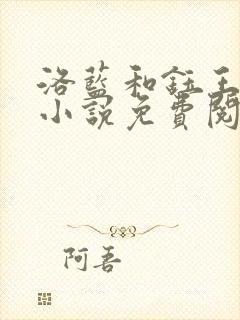 洛蓝和钰王
小说免费阅
阿吾